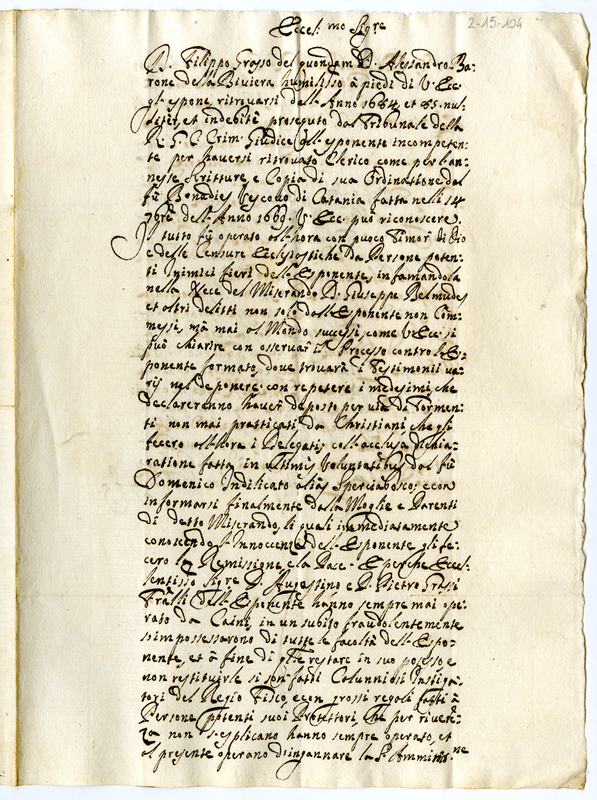 2-15-104
Eccel:mo Sig.re
D. Filippo Grasso del quondam D. Alessandro Ba:
rone della Riviera humiliss.o à piedi di V. Ecc.
gl'espone, ritrovarsi dall'Anno 1684, et 85. nul:
liter, et indebitè proseguto dal Tribunale della
R. G. C. Crim. Giudice all'esponente incompeten:
te per haversi ritrovato Clerico come per l'an:
nesse scritture, e Copia di sua Ordinattione dal
fù Bonadies Vescovo di Catania fatta nelli 14
7bre dell'Anno 1669. V. Ecc. può riconoscere.
Il tutto fù operato all'hora con puoco Timor di Dio
e delle Censure Ecclesiastiche da Persone poten:
ti inimici fieri dell'Esponente, infamandola
nella Nece del Miserando D. Giuseppe Belmudes
et altri delitti non solo dall'Esponente non Com:
messi, mà mai al Mondo successi, come V. Ecc. si
può chiarire con osservar il Processo contro l'Es:
ponente formato, dove trovarà i Testimonii va:
rij nel deponere. con repetere i medesimi, che
declareranno haver deposto per via di Tormen:
ti non mai pratticati da Christiani, che gli
fecero all'hora i Delegati, coll'acclusa dichia:
ratione fatta in ultimis Voluntatibus dal fù
Domenico Indilicato alias Sperciabosco; e con
informarsi finalmente dalla Moglie e Parenti
di detto Miserando, li quali immediatamente
conoscendo l'Innocenza dell'Esponente gli fe:
cero la Remissione e la Pace. E perche Eccel:
lentisso Sig.re D. Augustino e D. Pietro Grassi
Fratelli dell'Esponente hanno sempre mai ope:
rato da Caini, in un subito fraudolentemente
s'impossessarono di tutte le facoltà dell'Espo:
nente, et à fine di restare in suo possesso e
non restituirle si son fatti Calunniosi Instiga:
tori del Regio Fisco, e con grossi regali fatti à
Persone potenti suoi Protettori, che per riveren:
za non s'esplicano hanno sempre operato, et
al presente operano d'ingannare la